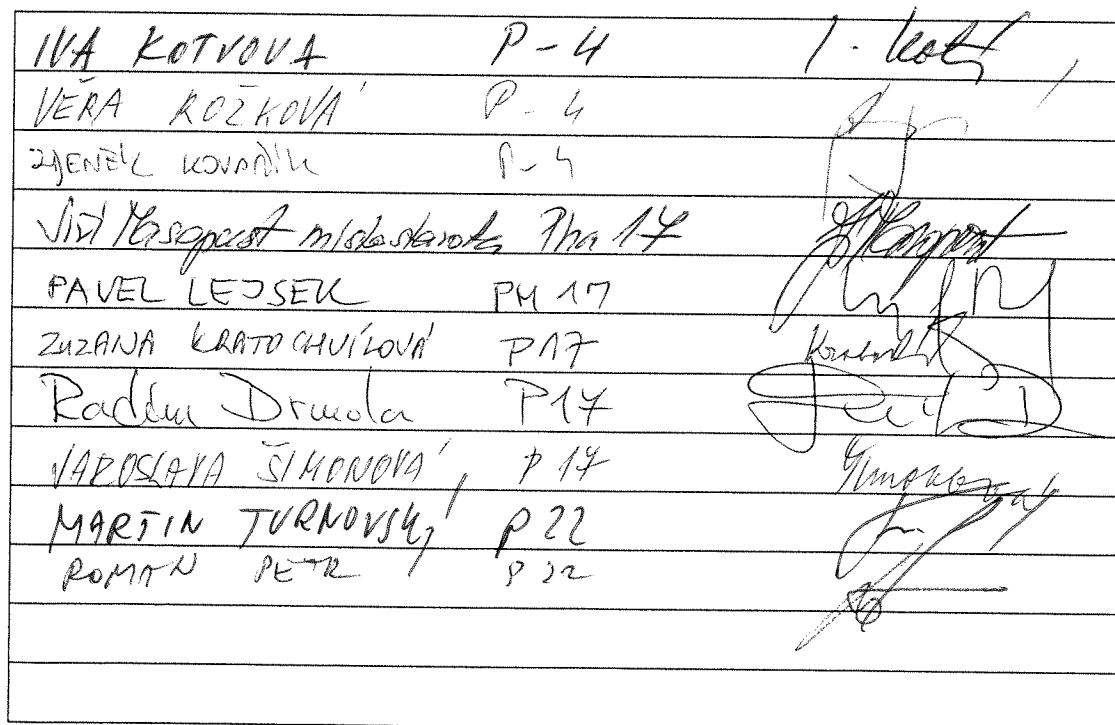 IVA KOTVOVA P-4 I. Kotv
VĚRA ROŽKOVÁ P-4
ZDENĚK KOVAŘÍK P-4
Jiří Masopust místostarosta Pha 17 J. Masopust
PAVEL LEJSEK PH 17
ZUZANA KRATOCHVÍLOVÁ P17
Radim Drmola P17
JAROSLAVA ŠIMONOVÁ, P 17 Šimonová
MARTIN TURNOVSKÝ P 22
ROMAN PETR P 22